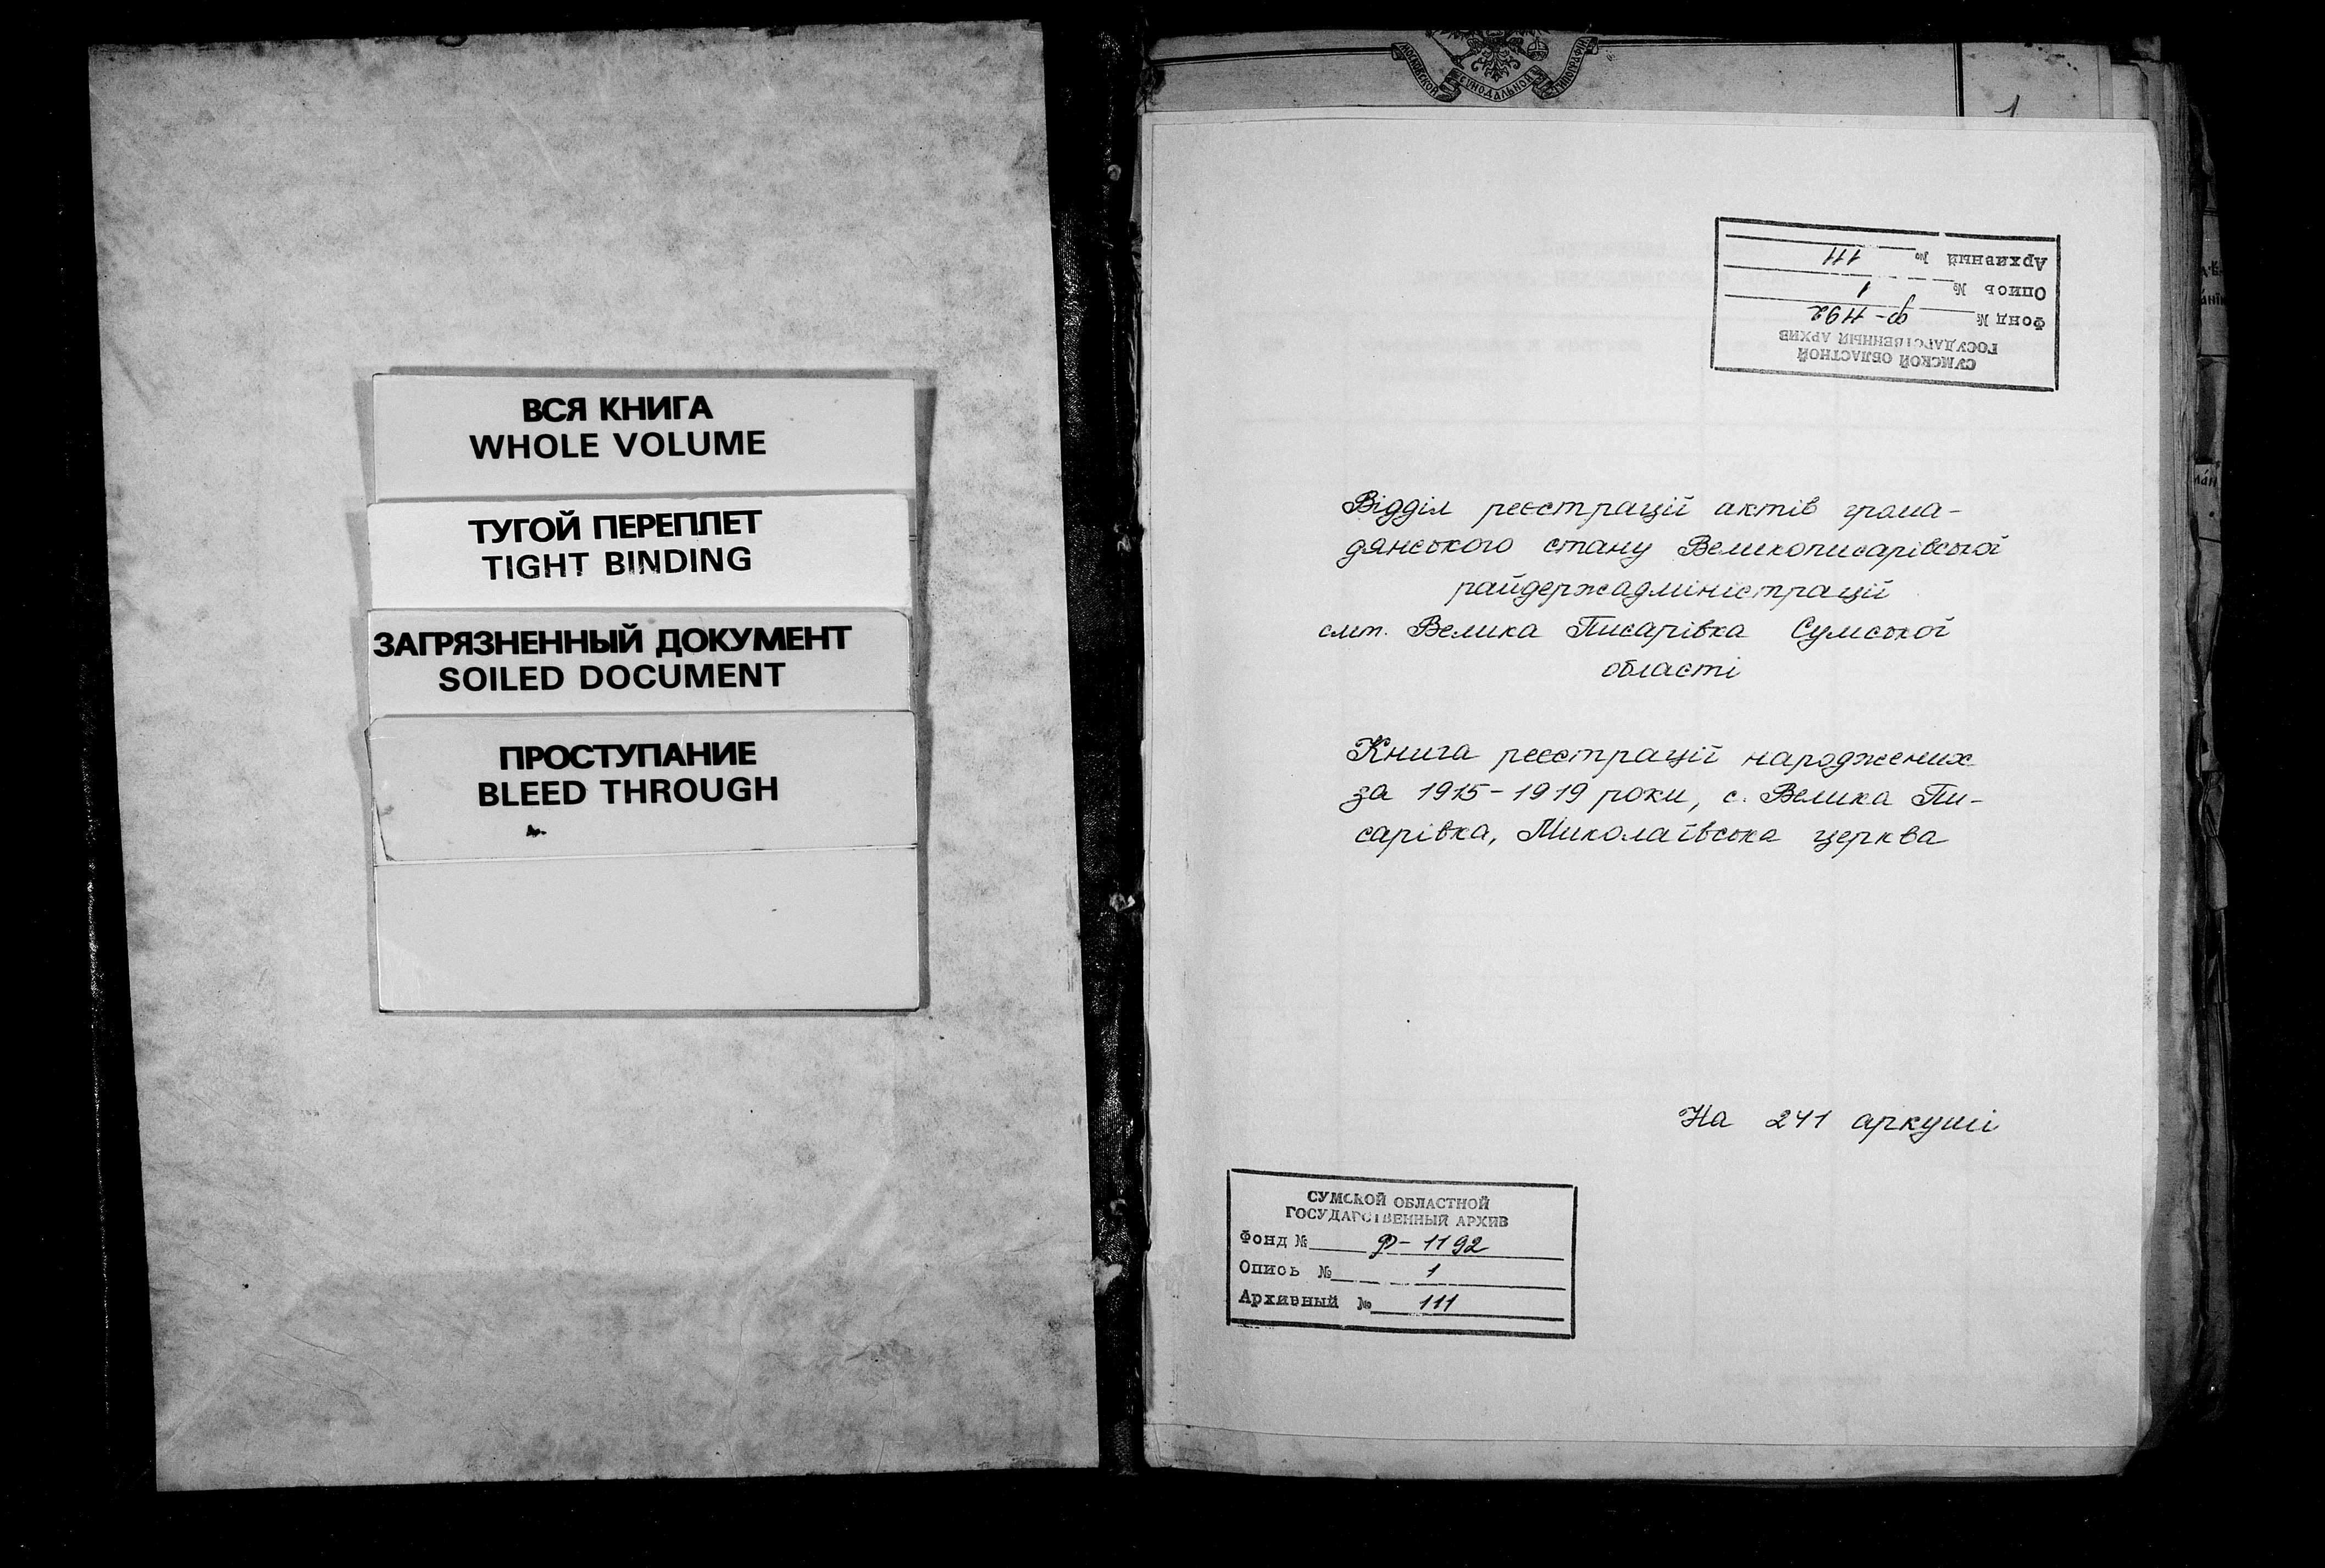 ВСЯ КНИГА
WHOLE VOLUME
ТУГОЙ ПЕРЕПЛЕТ
TIGHT BINDING
ЗАГРЯЗНЕННЫЙ ДОКУМЕНТ
SOILED DOCUMENT
ПРОСТУПАНИЕ
BLEED THROUGH
МОСКОВСКОЙ СУНОДАЛЬНОЙ ТИПОГРАФІИ
1
СУМСКОЙ ОБЛАСТНОЙ
ГОСУДАРСТВЕННЫЙ АРХИВ
Фонд № Ф-1192
Опись № 1
Архивный № 111
Відділ реєстрації актів грома-
дянського стану Великописарівської
райдержадміністрації
смт. Велика Писарівка Сумської
області
Книга реєстрації народжених
за 1915-1919 роки, с. Велика Пи-
сарівка, Миколаївська церква
На 241 аркуші
СУМСКОЙ ОБЛАСТНОЙ
ГОСУДАРСТВЕННЫЙ АРХИВ
Фонд № Ф-1192
Опись № 1
Архивный № 111